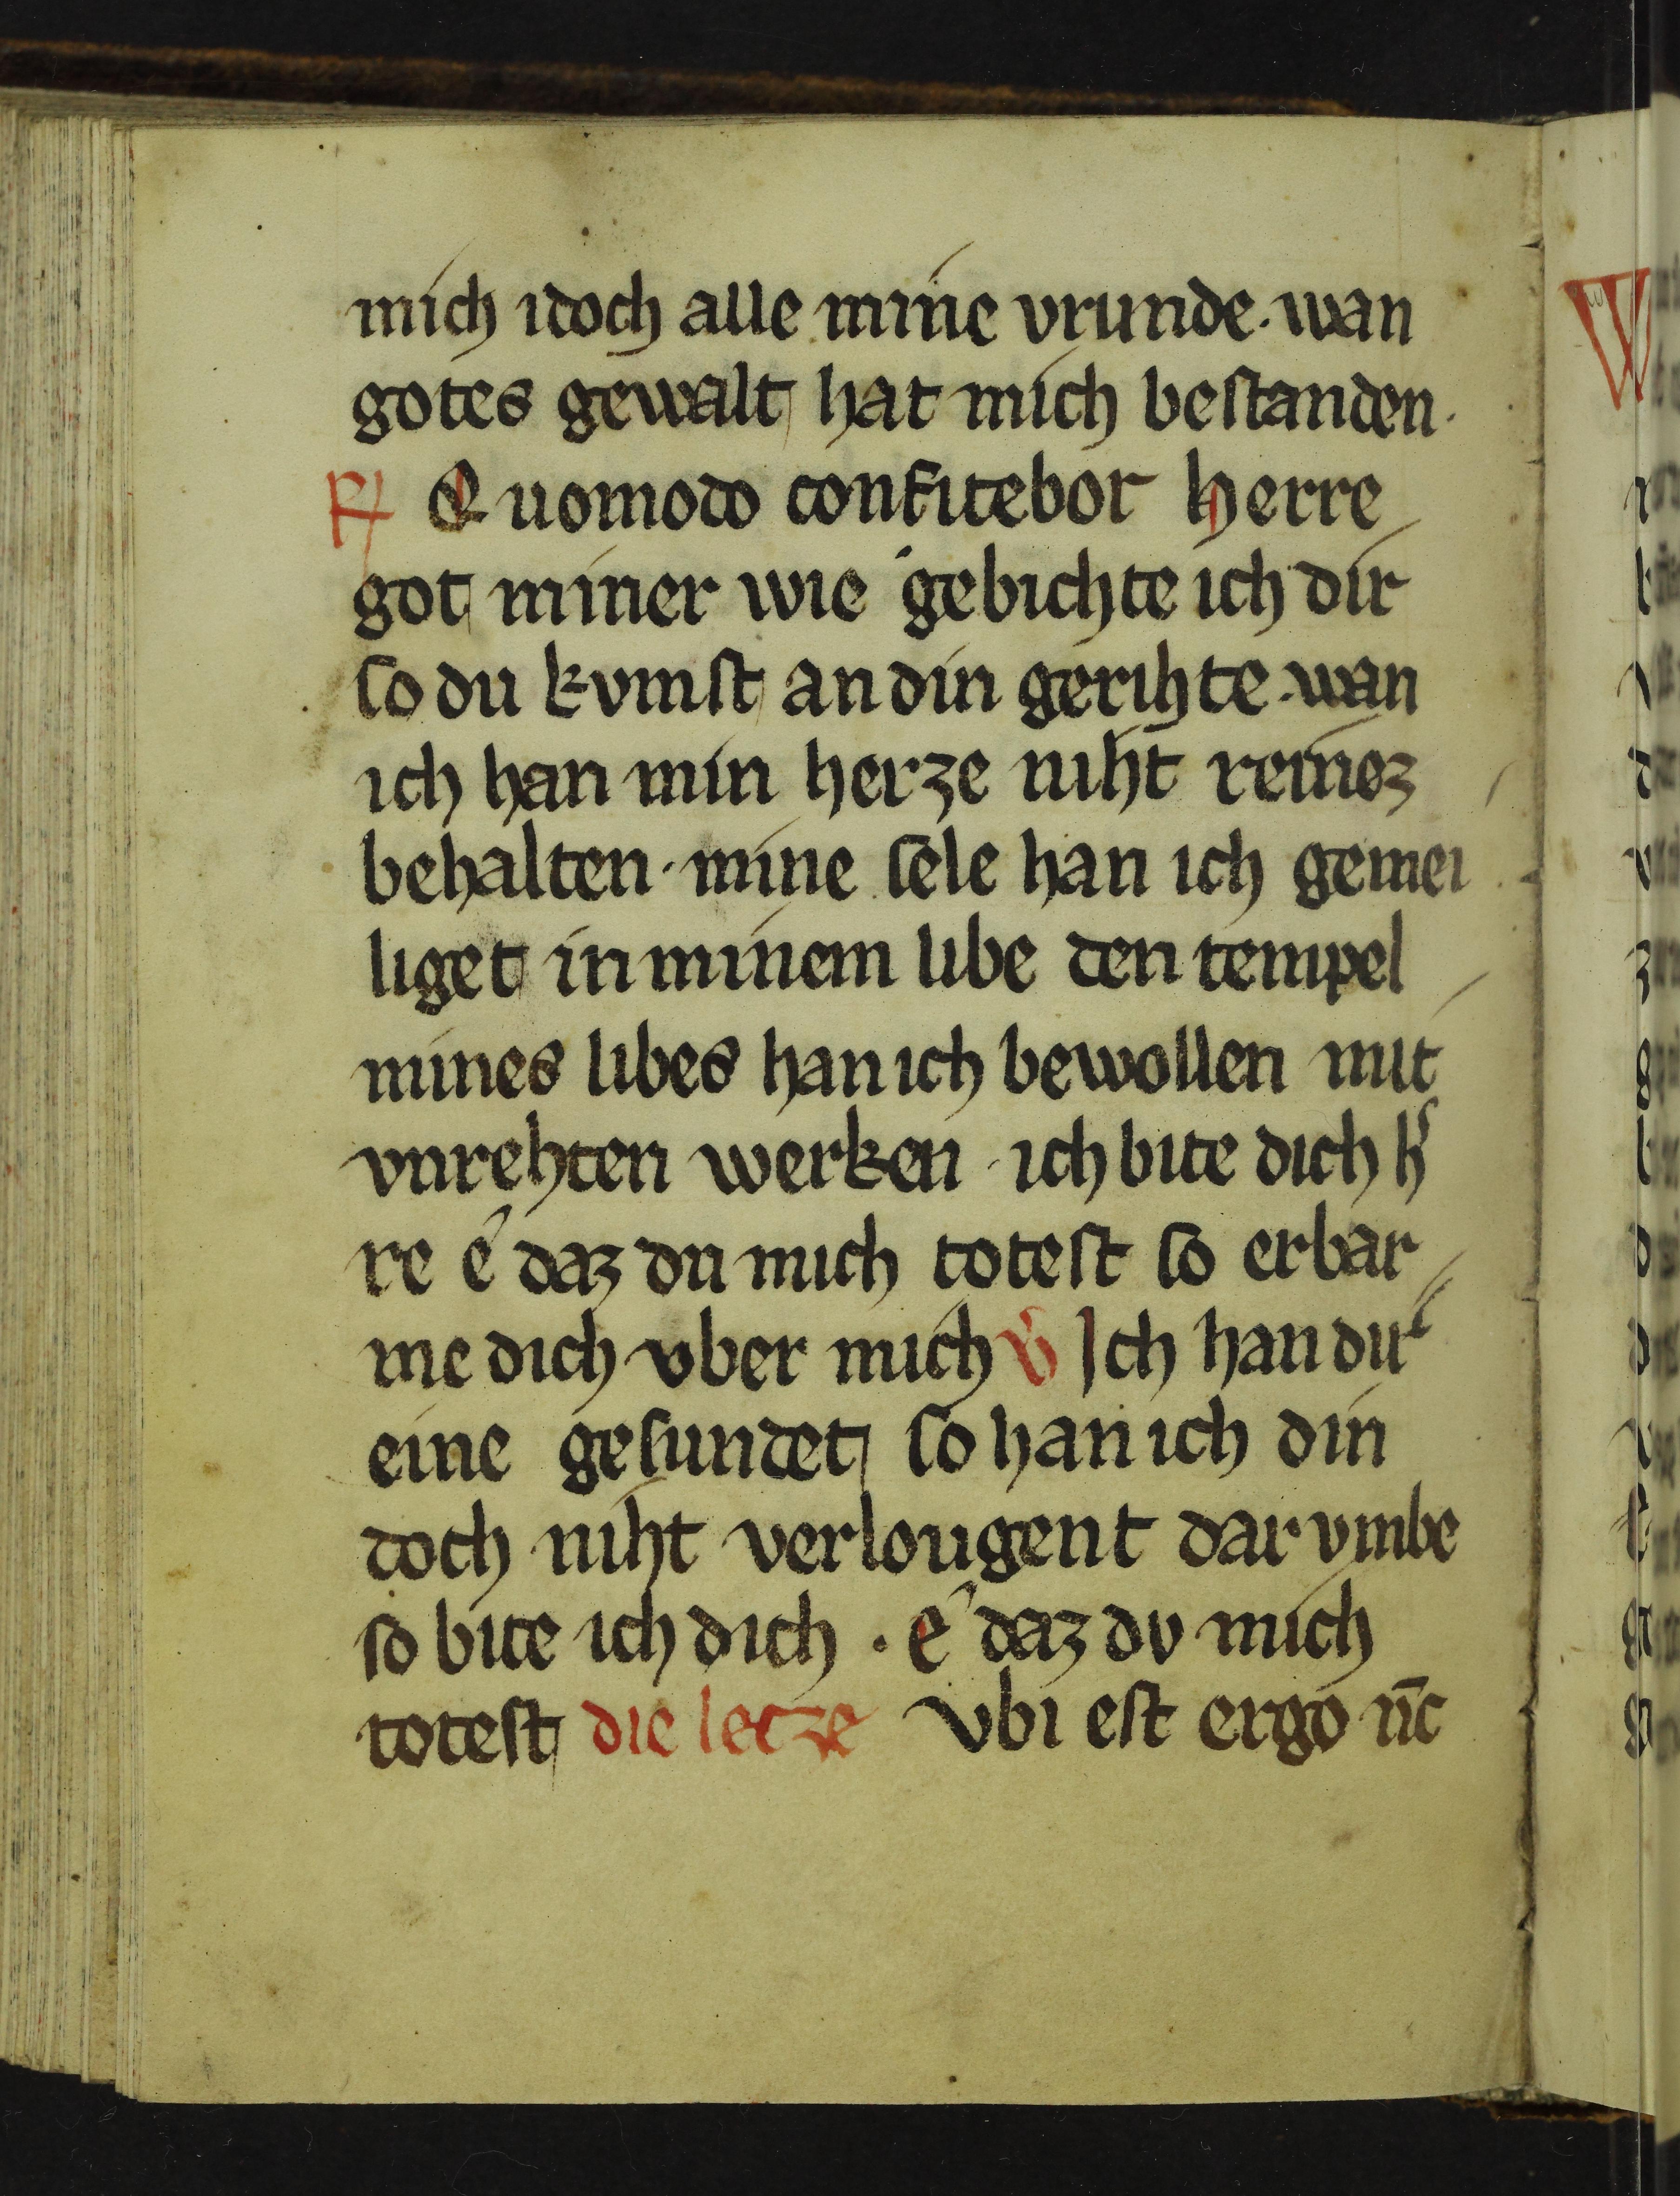 mich idoch alle mine vrunde · wan
gotes gewalt hat mich beſtanden ·
R Quomodo confitebor herre
got miner wie gebichte ich dir
ſo du kvmſt an din gerihte · wan
ich han min herze niht reinez
behalten · mine ſele han ich gemei
liget in minem libe den tempel
mines libes han ich bewollen mit
vnrehten werken · ich bite dich h̾
re e daz du mich toteſt ſo erbar
me dich vber mich V Ich han dir
eine geſundet ſo han ich din
doch niht verlougent dar vmbe
ſo bite ich dich · e daz dv mich
toteſt die letze Vbi eſt ergo nc̄